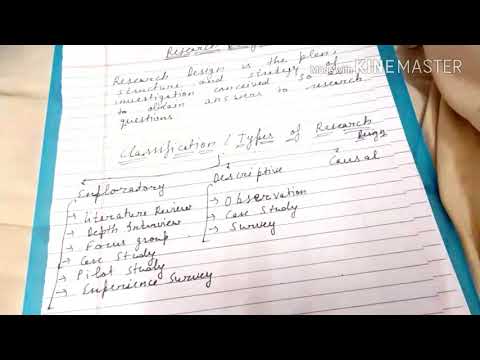 Research
Made with KINEMASTER
Research Design is the plan,
structure and strategy of
investigation conceived so
to obtain answers to research
questions
Classification / Types of Research
Design
Exploratory
Descriptive
Causal
→ Literature Review
→ Depth Interview
→ Focus group
→ Case Study
→ Pilot Study
→ Experience Survey
→ Observation
→ Case Study
→ Survey